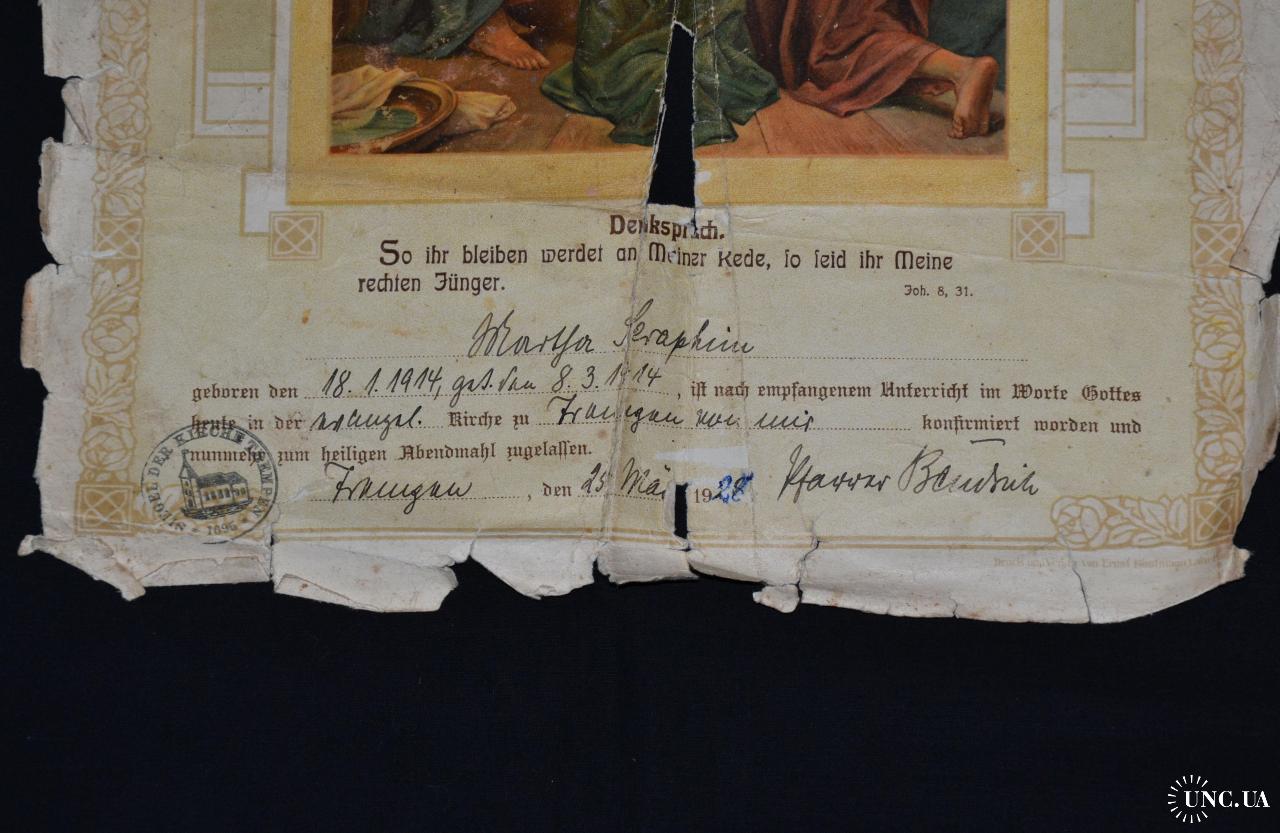 Denkspruch.
So ihr bleiben werdet an Meiner Rede, so seid ihr Meine
rechten Jünger.
Joh. 8, 31.
Martha Seraphim
geboren den 18. 1. 1914, get. den 8. 3. 1914, ist nach empfangenem Unterricht im Worte Gottes
heute in der evangel. Kirche zu von mir konfirmiert worden und
nunmehr zum heiligen Abendmahl zugelassen.
, den 25 1928 Pfarrer
SIEGEL DER KIRCHE
1896
Druck und Verlag von Ernst Kaufmann
UNC.UA